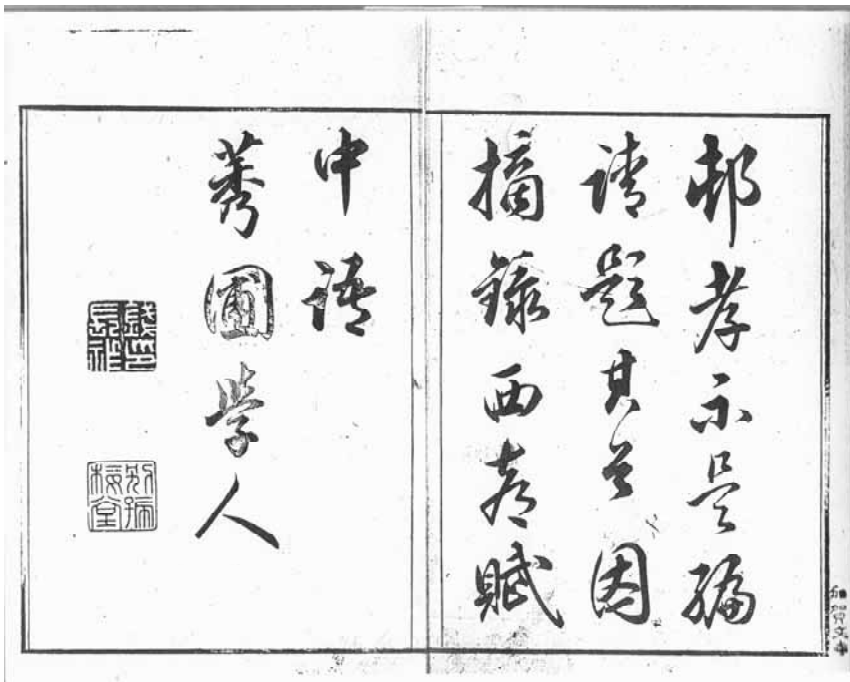 邨孝示是編
請題其首因
摘錄西都賦
中語
莠圃學人
加賀文庫